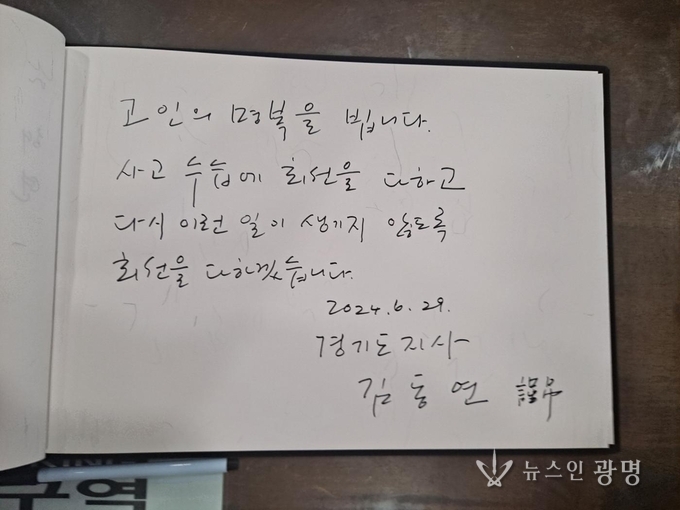 고인의 명복을 빕니다.
사고 수습에 최선을 다하고
다시 이런 일이 생기지 않도록
최선을 다하겠습니다.
2024.6.29.
경기도지사
김동연 謹弔
구역
뉴스인 광명